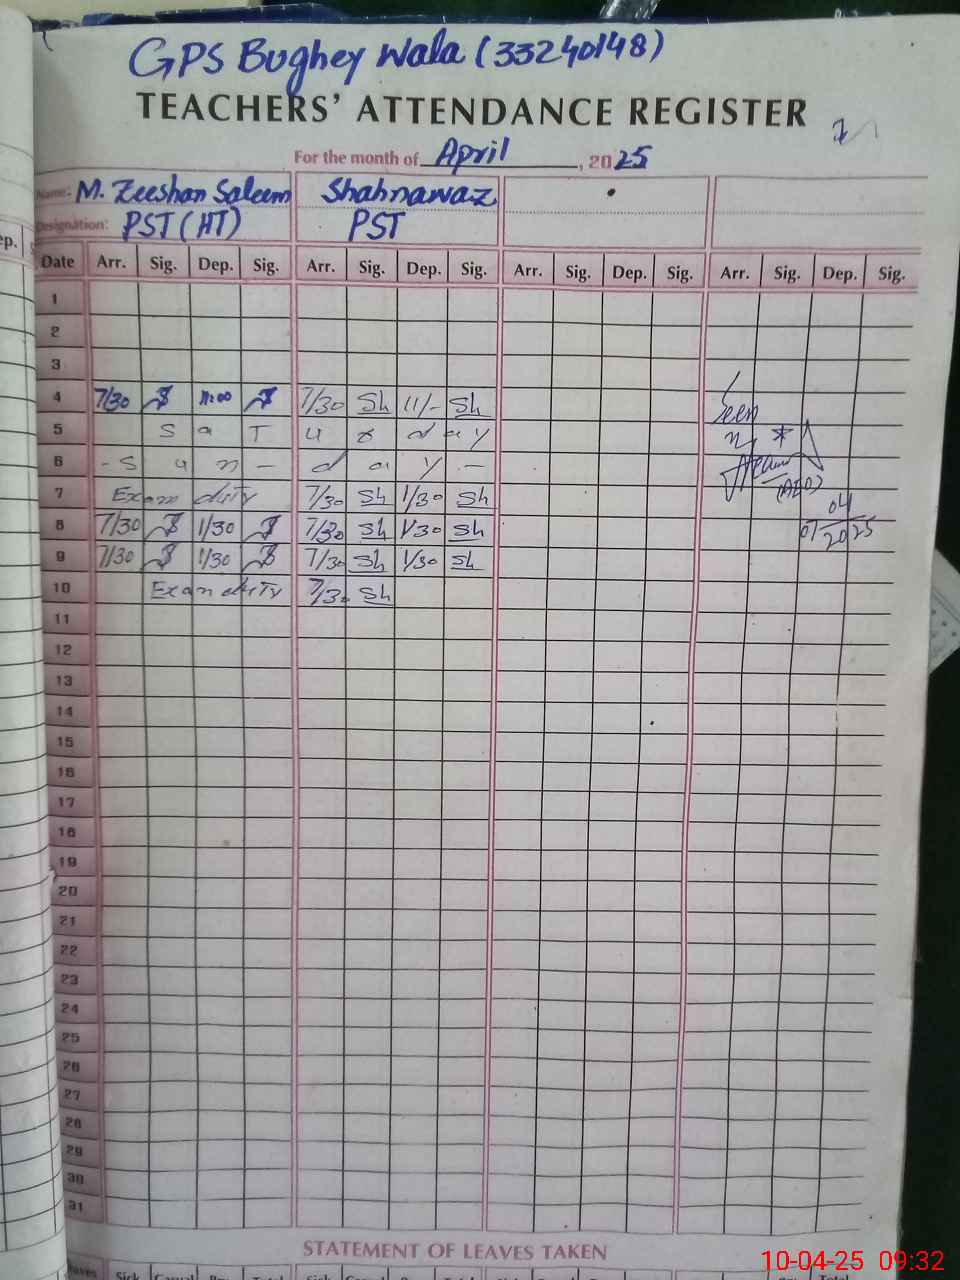 GPS Bughey Wala (33240148)
TEACHERS' ATTENDANCE REGISTER
For the month of April, 2025
Name: M. Zeeshan Saleem Shahnawaz
Designation: PST (HT) PST
Date Arr. Sig. Dep. Sig. Arr. Sig. Dep. Sig. Arr. Sig. Dep. Sig. Arr. Sig. Dep. Sig.
1
2
3
4 7/30 11:00 7/30 Sh 11/- Sh
Seen
5 S a T u r d a y
6 - S u n - d a y -
7 Exam duty 7/30 Sh 1/30 Sh
(AEO)
8 7/30 1/30 7/30 Sh 1/30 Sh
07 04 2025
9 7/30 1/30 7/30 Sh 1/30 Sh
10 Exam duty 7/30 Sh
11
12
13
14
15
16
17
18
19
20
21
22
23
24
25
26
27
28
29
30
31
STATEMENT OF LEAVES TAKEN
10-04-25 09:32